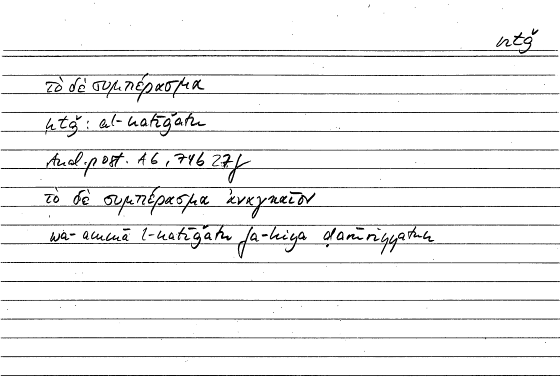 ntǧ
τὸ δὲ συμπέρασμα
ntǧ: al-natīǧatu
Anal. post. A6, 74b 27f
τὸ δὲ συμπέρασμα ἀναγκαῖον
wa-ammā l-natīǧatu fa-hiya ḍarūriyyatun